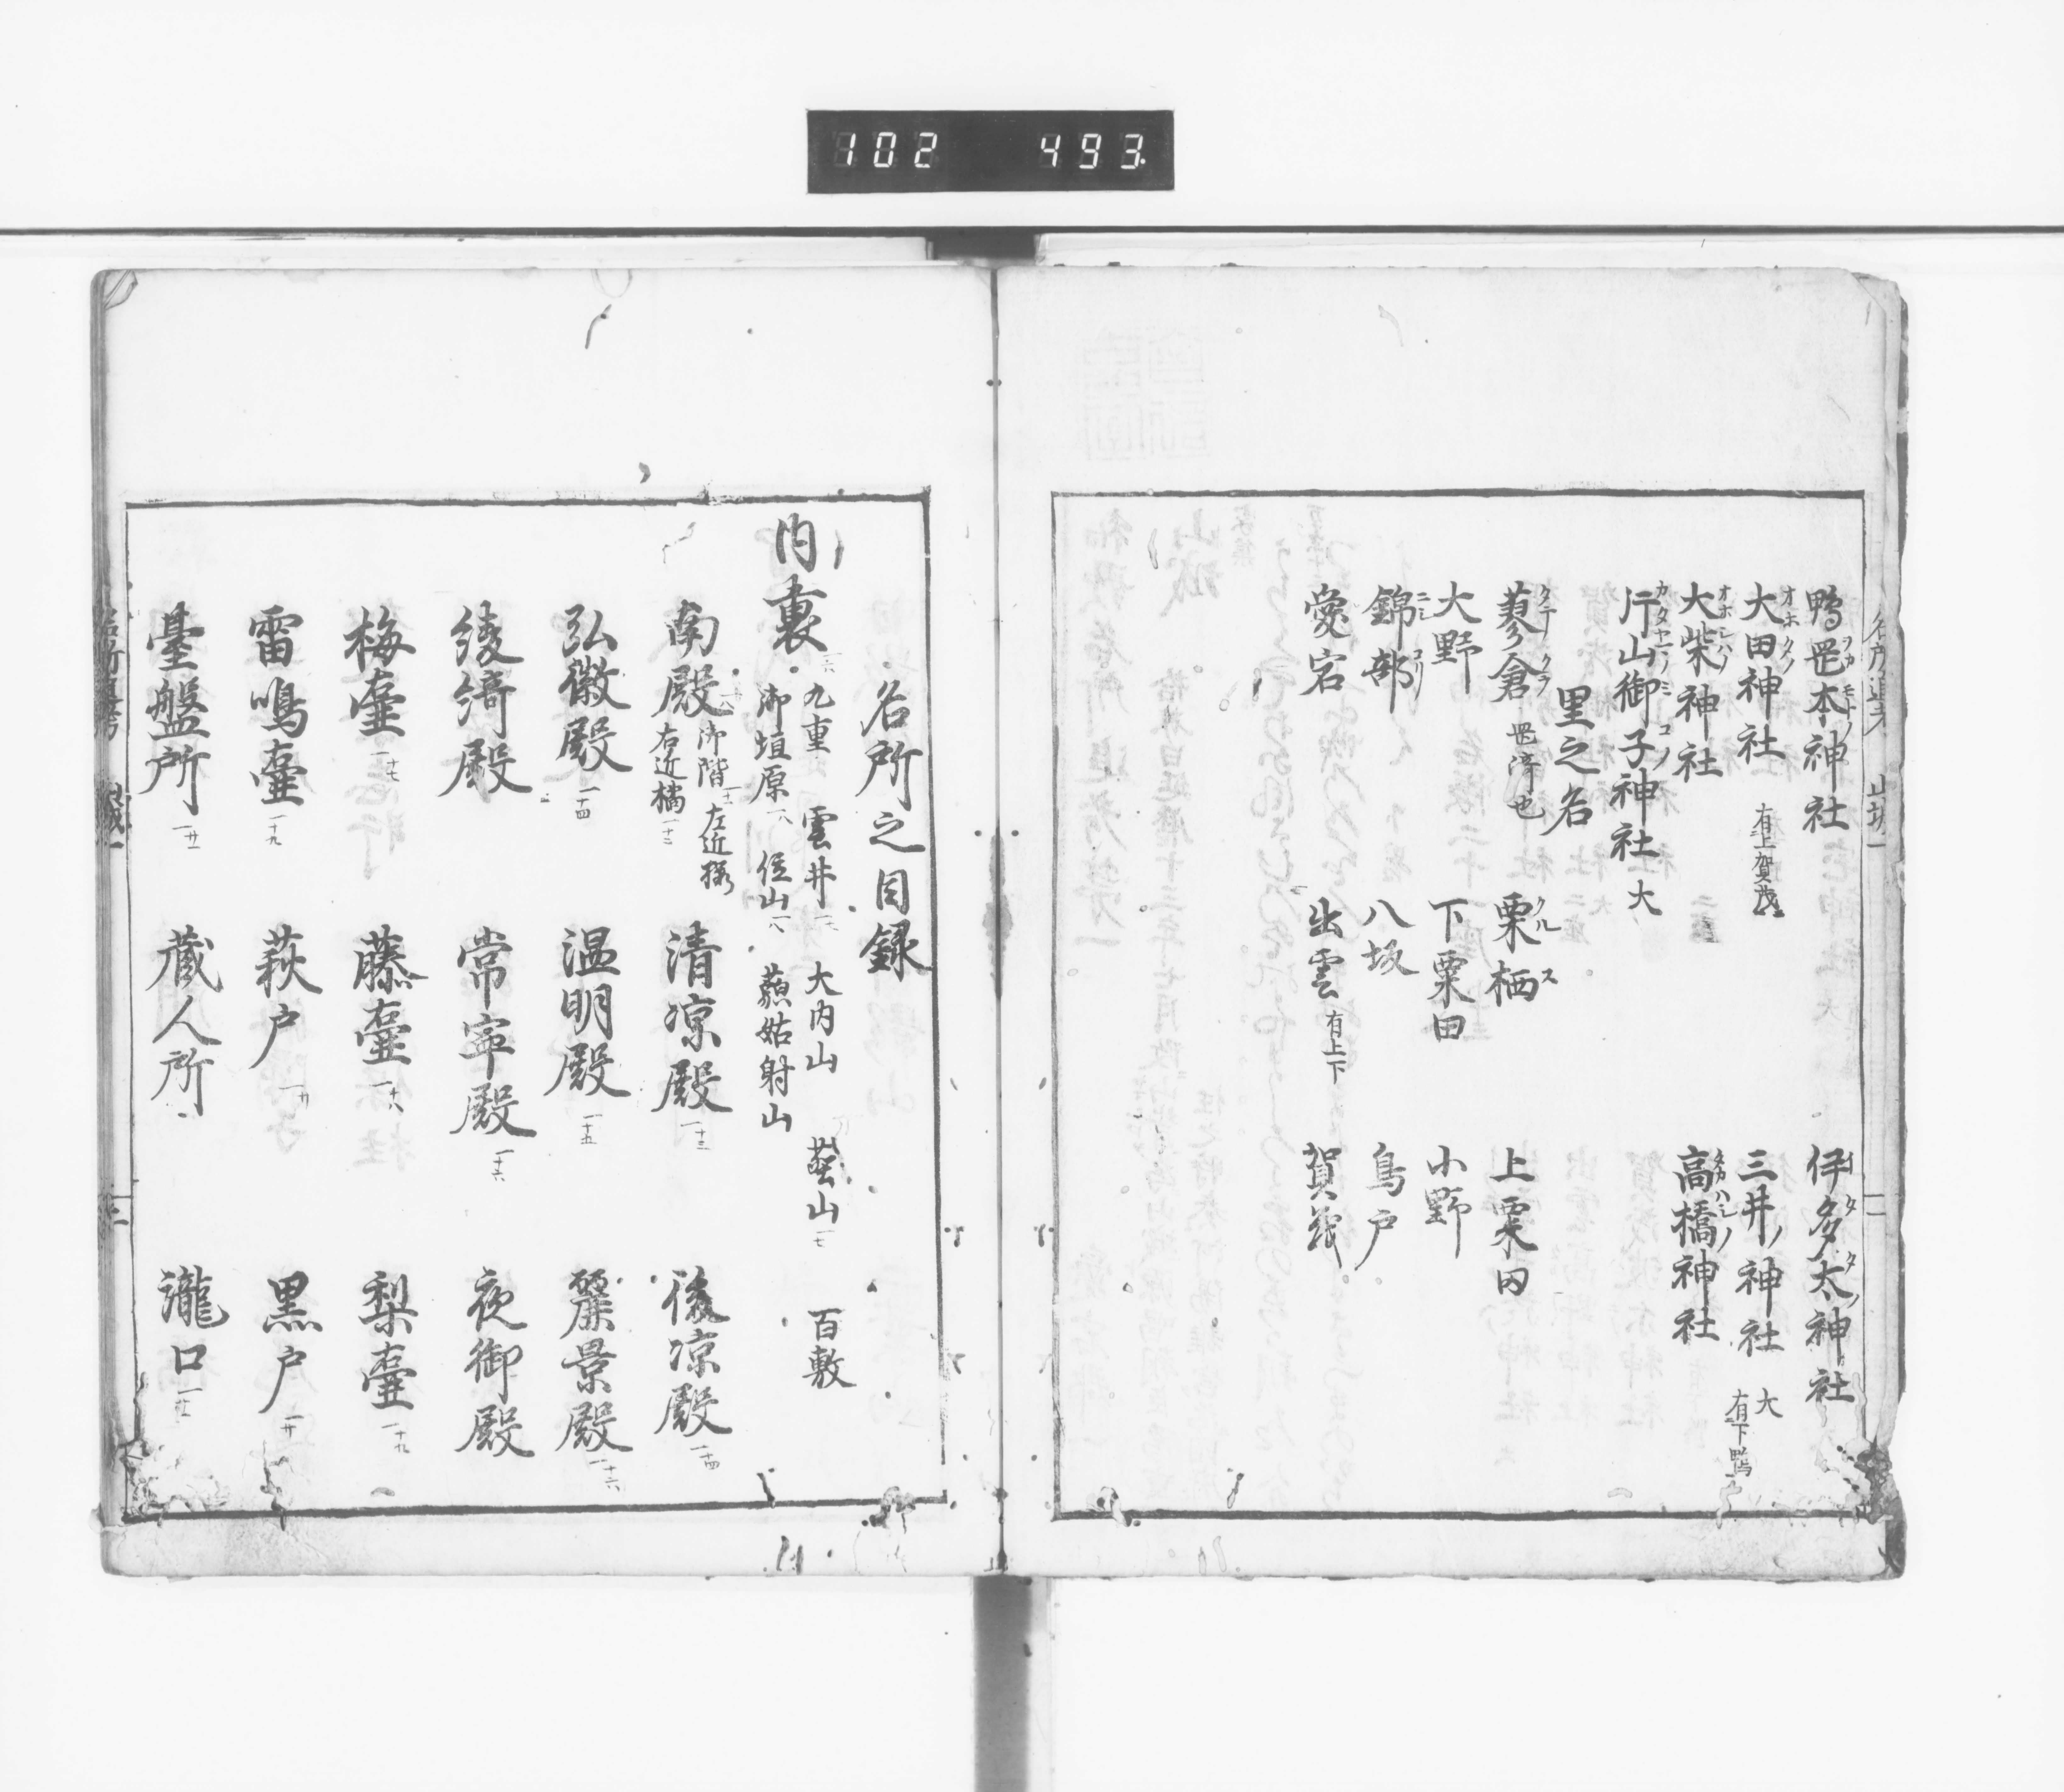 102 493
鴨岡本神社 伊多太神社
大田神社 有上賀茂 三井ノ神社 大 有下鴨
大柴神社 高橋神社
片山御子神社 大
里之名
蓼倉 栗栖 上粟田
大野 下粟田 小野
錦部 八坂 鳥戸
愛宕 出雲 有上下 賀茂
名所之目録
内裏 九重 雲井 大内山 𦾔山 百敷
御垣原 位山 藐姑射山
南殿 御階 左近桜 右近橘 清凉殿 後凉殿
弘徽殿 温明殿 麗景殿
綾綺殿 常寧殿 夜御殿
梅壷 藤壷 梨壷
雷鳴壷 萩戸 黒戸
臺盤所 蔵人所 瀧口